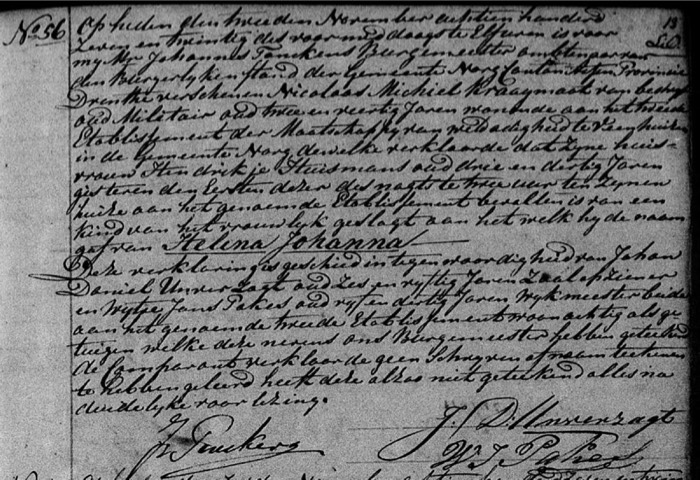 No 56
Op heden den tweeden November achtien honderd
zeven en twintig des voormiddaags te Elf uren is voor
my Mr. Johannes Tonckens Burgemeester ambtenaar van
den Burgerlyken stand der Gemeente Norg Canton Assen Provincie
Drenthe verschenen Nicolaas Michiel Kraaymaat van beroep
oud Militair oud twee en veertig Jaren wonende aan het tweede
Etablissement der Maatschappy van weldadigheid te Veenhuizen
in de Gemeente Norg dewelke verklaarde dat zyne huis-
vrouw Hendrikje Huismans oud drie en dertig Jaren
gisteren den Eersten dezer des nagts te twee uur ten zynen
huize aan het genoemde Etablissement bevallen is van een
kind van het vrouwlyk geslagt aan het welk hy de naam
gaf van Helena Johanna
Deze verklaring is geschied in tegenwoordigheid van Johan
Daniel Unverzagt oud zes en vyftig Jaren Zaalopziener
en Wytze Jans Pakes oud vyf en dertig Jaren wykmeester beide
aan het genoemde tweede Etablissement woonachtig als ge-
tuigen welke deze nevens ons Burgemeester hebben geteekend
de Comparant verklaarde geen Schryven of naamteekenen
te hebben geleerd heeft deze alzoo niet geteekend alles na
duidelyke voorlezing.
J. Tonckens
J. D. Unverzagt
W J Pakes